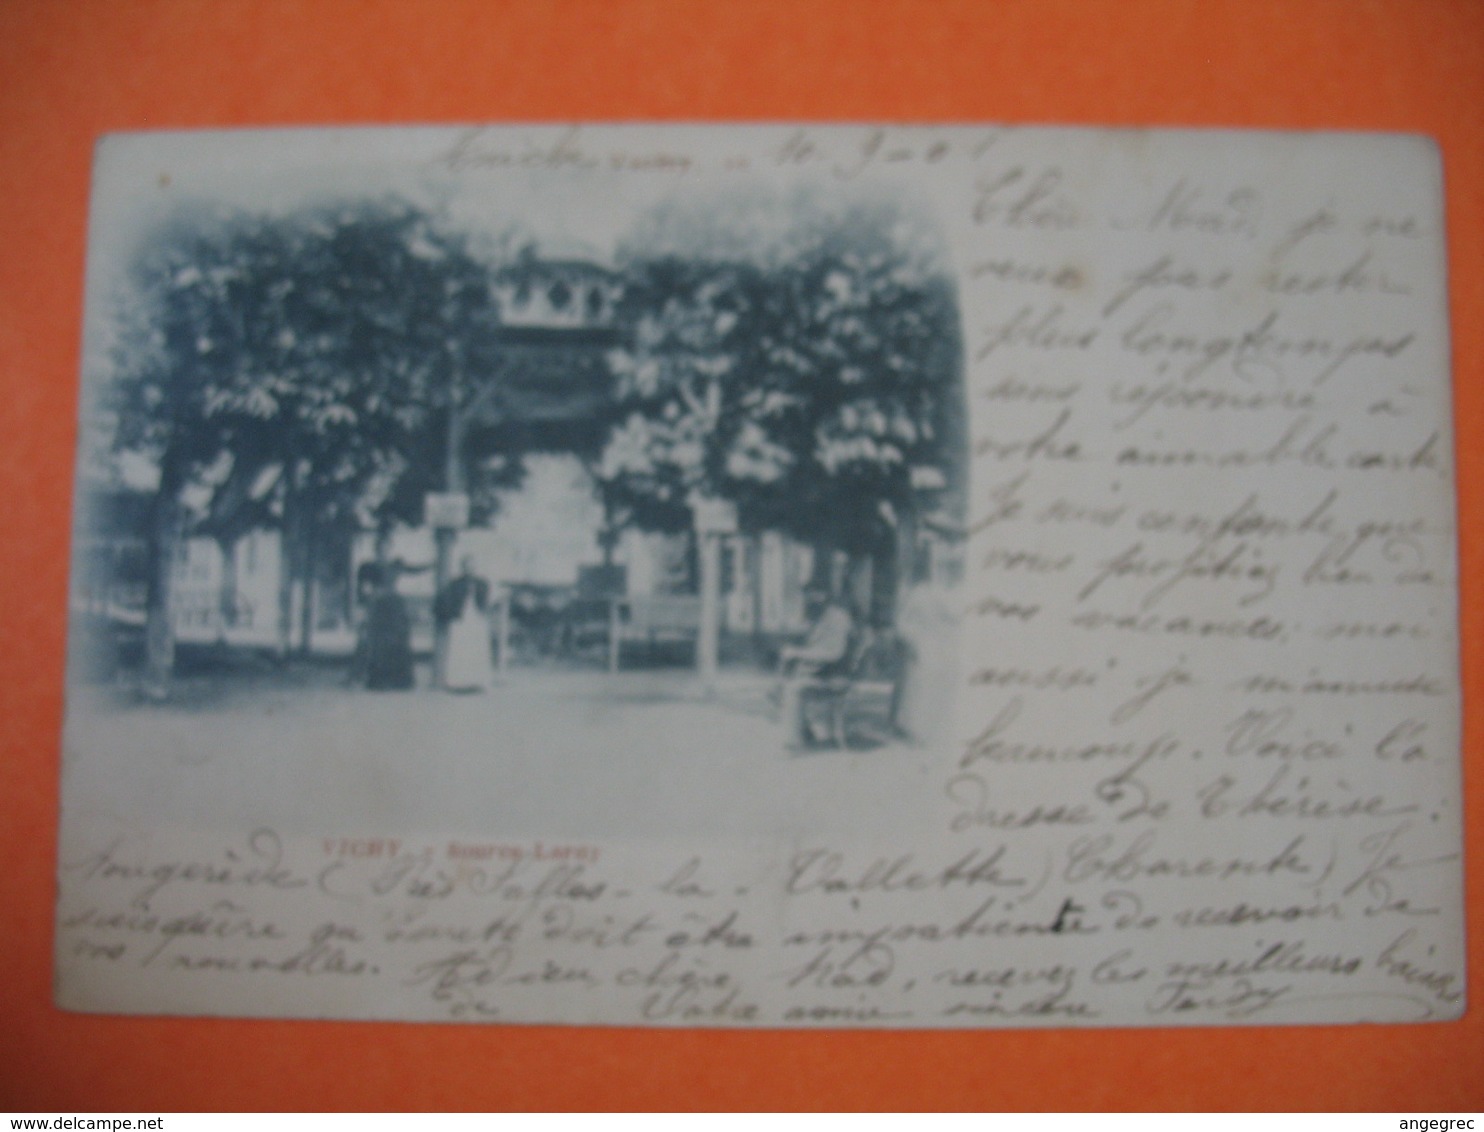 Vichy, le 10-9-01
Chère Mad, je ne
veux pas rester
plus longtemps
sans répondre à
votre aimable carte.
Je suis contente que
vous profitiez bien de
vos vacances; moi
aussi je m'amuse
beaucoup. Voici l'a-
dresse de Thérèse:
VICHY. - Source-Lardy
Fougerède (Près Salles-la-Vallette) (Charente) Je
suis sûre qu' doit être impatiente de recevoir de
vos nouvelles. Adieu, chère Mad, recevez les meilleurs baisers
de Votre amie sincère
delcampe.net
angegrec